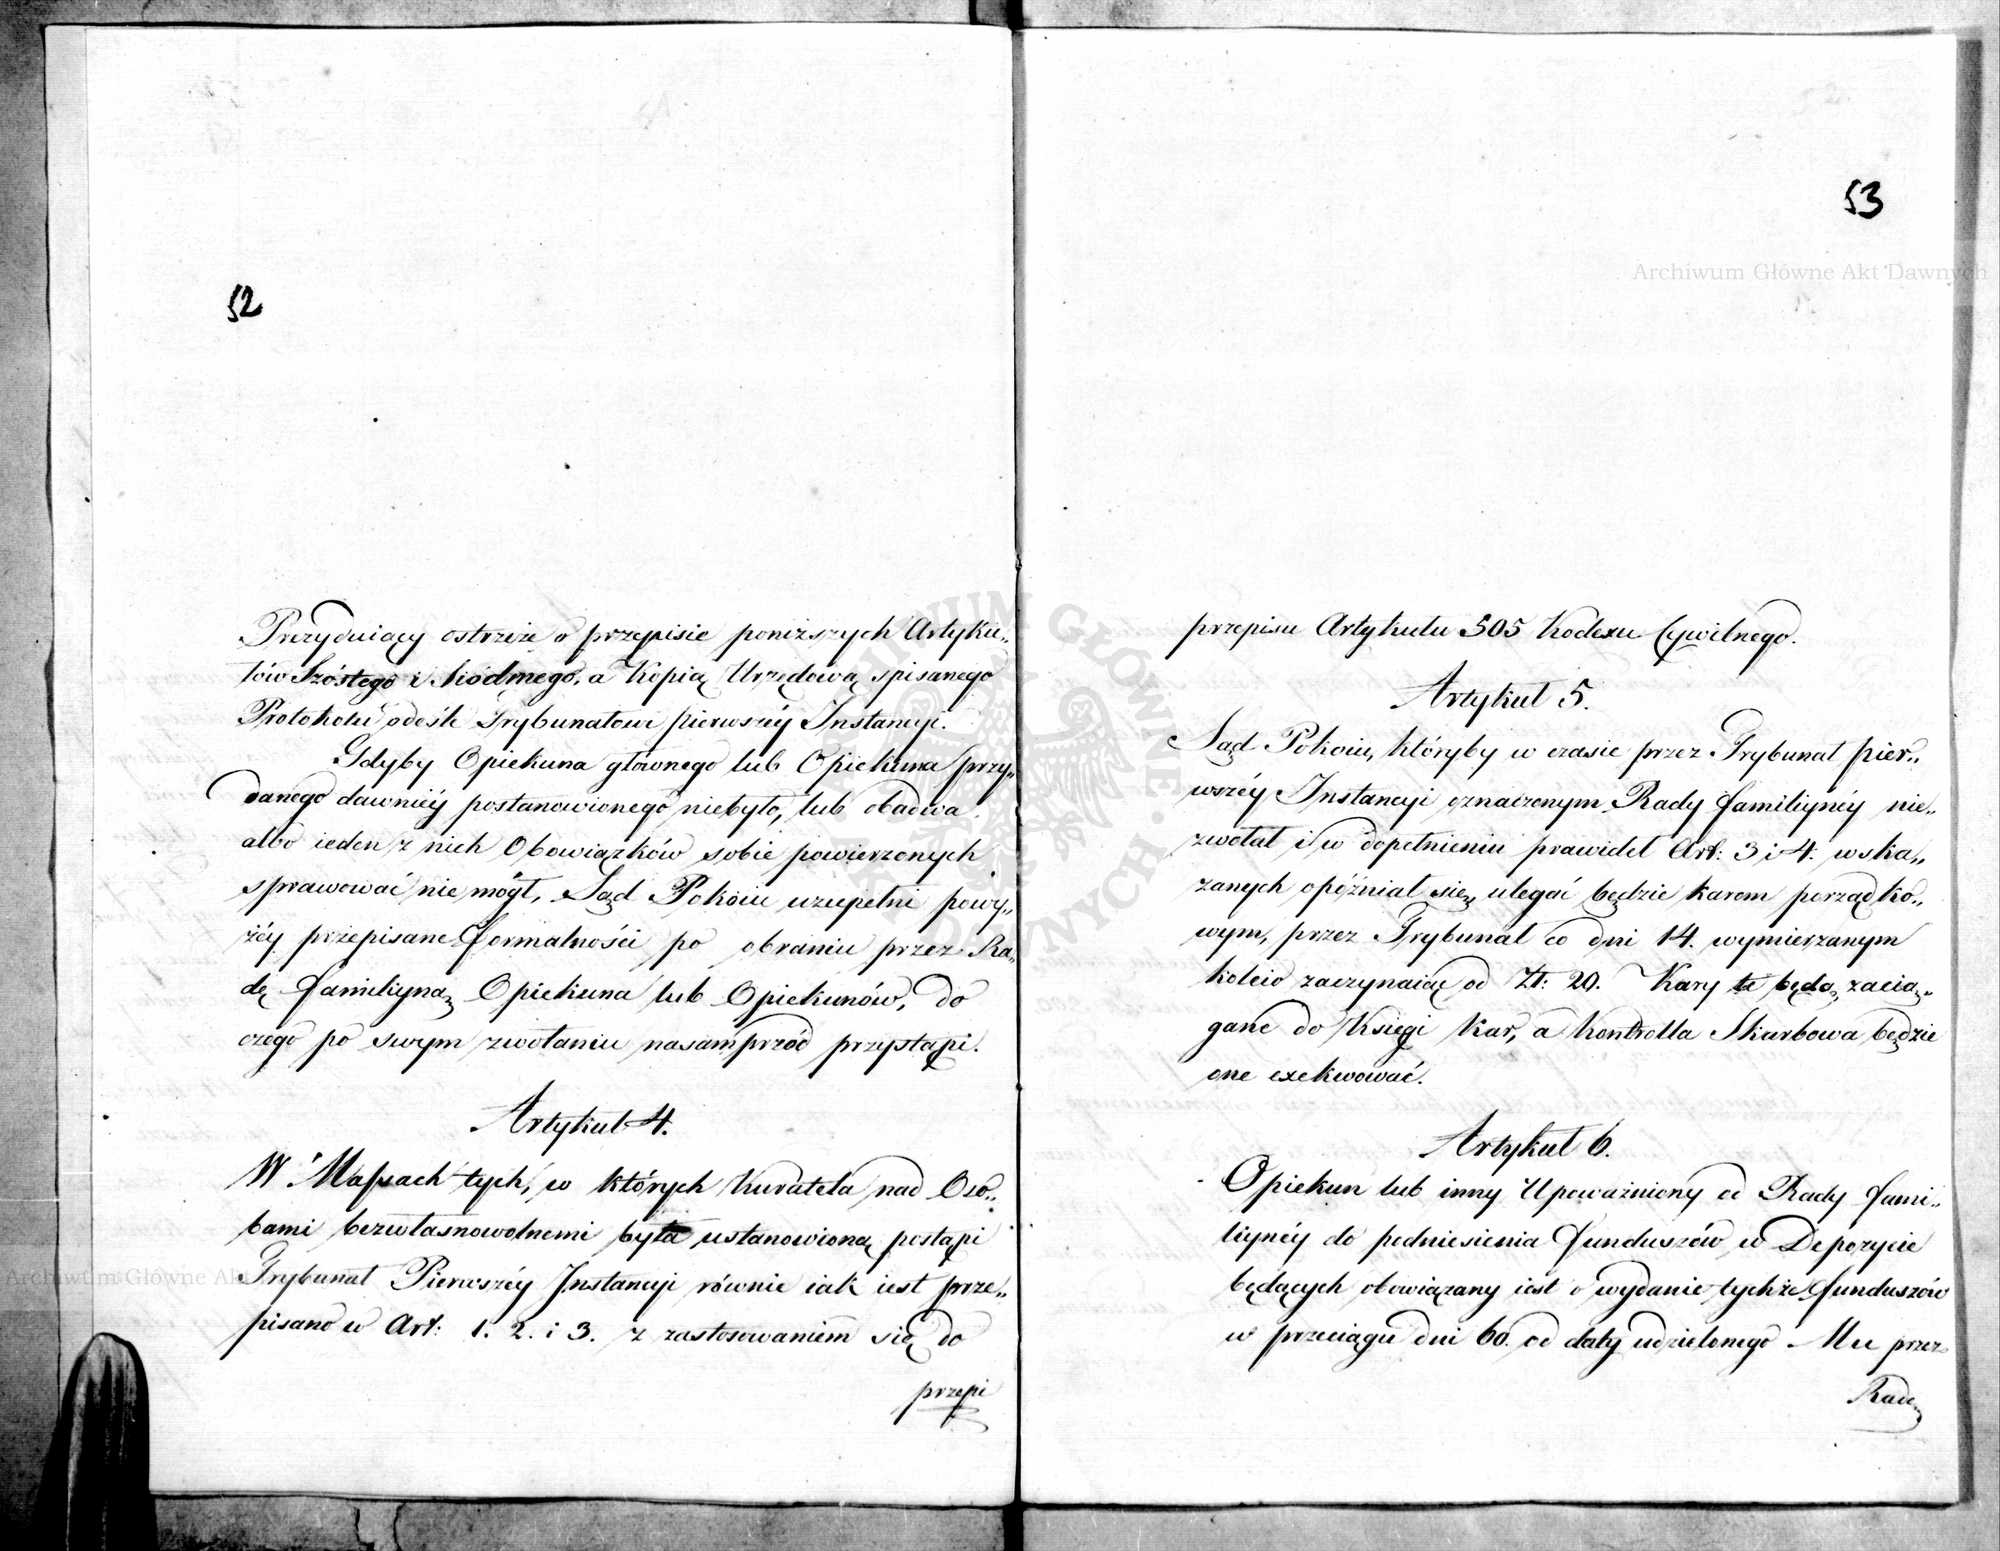 52
Prezyduiący ostrzeże o przepisie poniższych Artyku„
łów Szóstego i Siódmego, a Kopią Urzędową spisanego
Protokołu odeśle Trybunałowi pierwszéy Instancyi.
Gdyby Opiekuna głównego lub Opiekuna przy„
danego dawniéy postanowionego niebyło, lub obadwa
albo ieden z nich Obowiązków sobie powierzonych
sprawować nie mógł, Sąd Pokoiu uzupełni powy„
żéy przepisane formalności po obraniu przez Ra„
dę familiyną Opiekuna lub Opiekunów, do
czego po swym zwołaniu nasamprzód przystąpi.
Artykuł 4.
W Massach tych, w których Kuratela nad Oso„
bami bezwłasnowolnemi była ustanowioną postąpi
Trybunał Pierwszéy Instancyi równie iak iest prze„
pisano w Art: 1. 2. i 3. z zastosowaniem się do
przepi
53
przepisu Artykułu 505 Kodexu Cywilnego.
Artykuł 5.
Sąd Pokoiu, któryby w czasie przez Trybunał pier„
wszéy Instancyi oznaczonym Rady familiynéy nie„
zwołał i w dopełnieniu prawideł Art: 3 i 4. wska„
zanych opóźniał się, ulegać będzie karom porządko„
wym, przez Trybunał co dni 14. wymierzanym
koleio zaczynaiąc od Zł: 20. Kary te będą, zacią„
gane do Księgi Kar, a Kontrolla Skarbowa będzie
one exekwować.
Artykuł 6.
Opiekun lub inny Upoważniony od Rady fami„
liynéy do podniesienia funduszów w Depozycie
będących obowiązany iest o wydanie tychże funduszów
w przeciągu dni 60. od daty udzielonego Mu przez
Radę
Archiwum Główne Akt Dawnych
Archiwum Główne Ak
ARCHIWUM GŁÓWNE AKT DAWNYCH